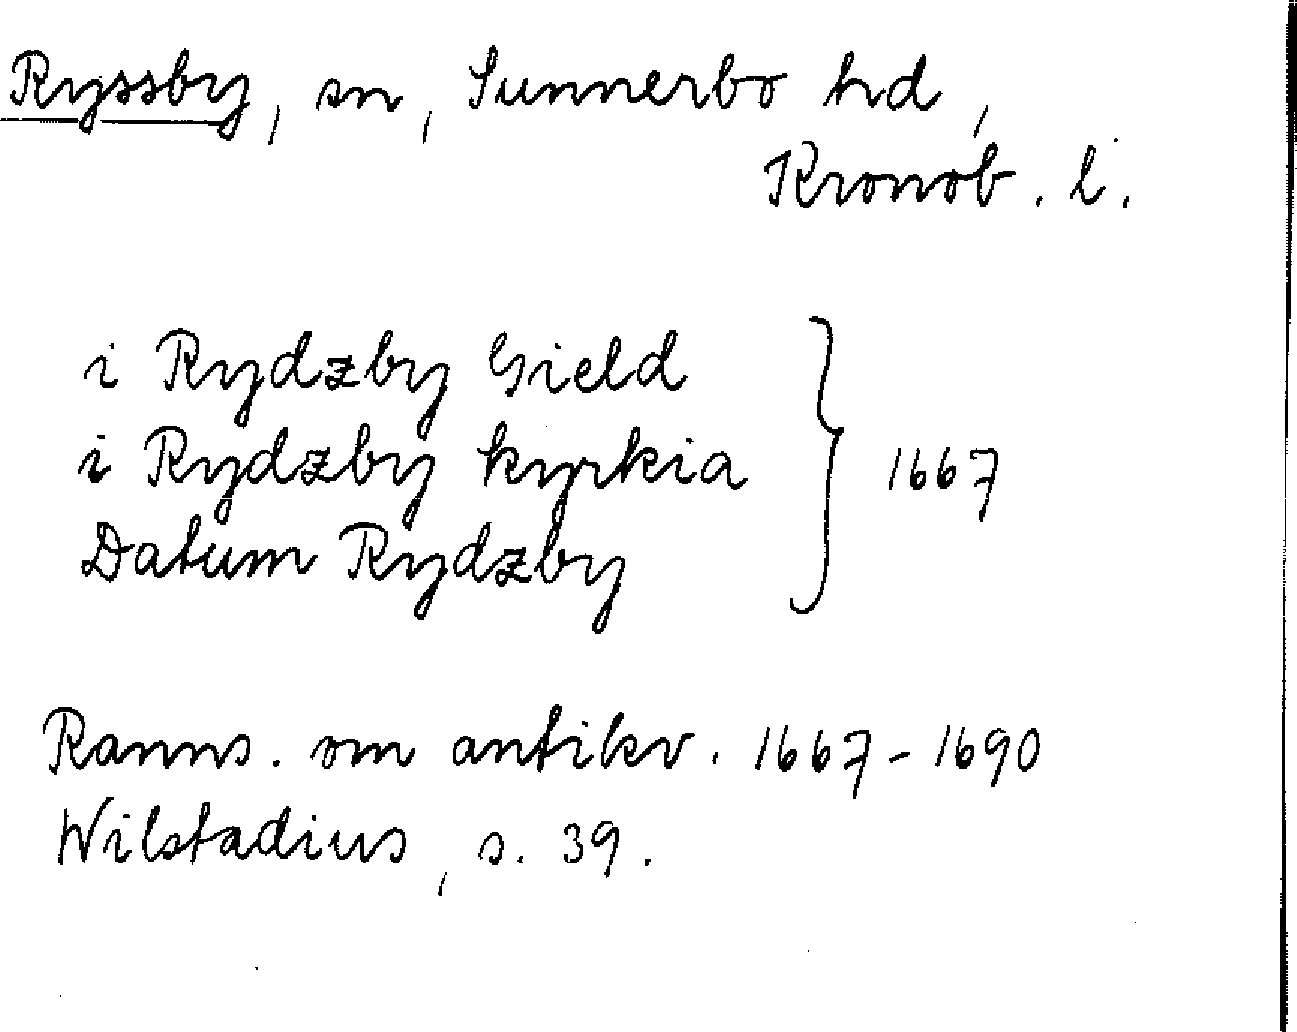 Ryssby, sn, Sunnerbo hd,
Kronob. l.
i Rydzby Gield
i Rydzby kyrkia
Datum Rydzby
} 1667
Ranns. om antikv. 1667-1690
Wilstadius, s. 39.